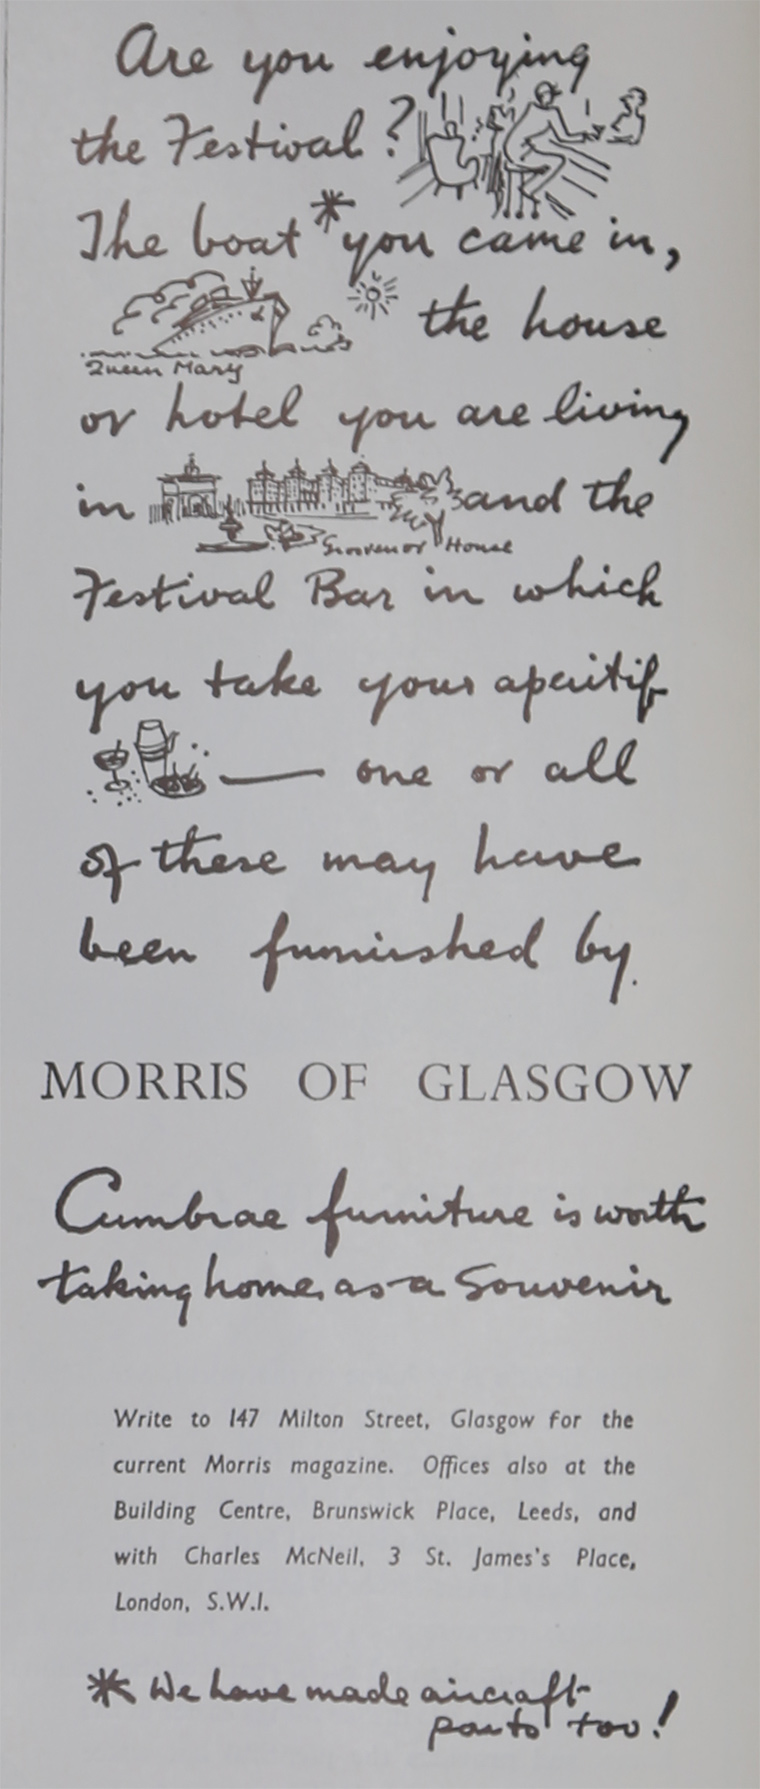 Are you enjoying
the Festival?
The boat * you came in,
the house
Queen Mary
or hotel you are living
in and the
Grosvenor House
Festival Bar in which
you take your aperitif
— one or all
of these may have
been furnished by
MORRIS OF GLASGOW
Cumbrae furniture is worth
taking home as a Souvenir
Write to 147 Milton Street, Glasgow for the
current Morris magazine. Offices also at the
Building Centre, Brunswick Place, Leeds, and
with Charles McNeil, 3 St. James's Place,
London, S.W.1.
* We have made aircraft
parts too!